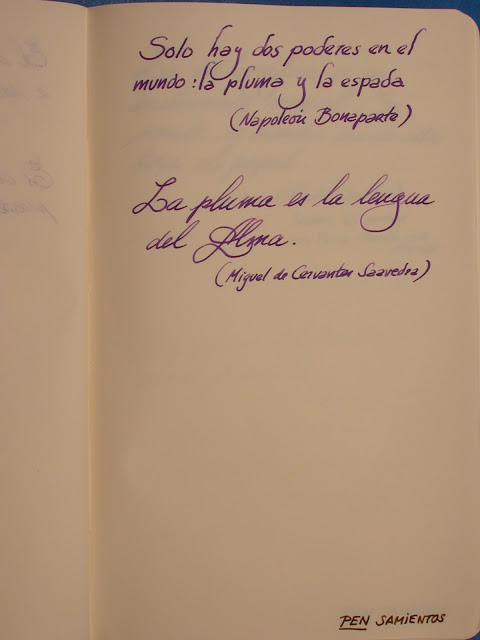 Solo hay dos poderes en el
mundo: la pluma y la espada
(Napoleón Bonaparte)
La pluma es la lengua
del Alma.
(Miguel de Cervantes Saavedra)
PEN SAMIENTOS